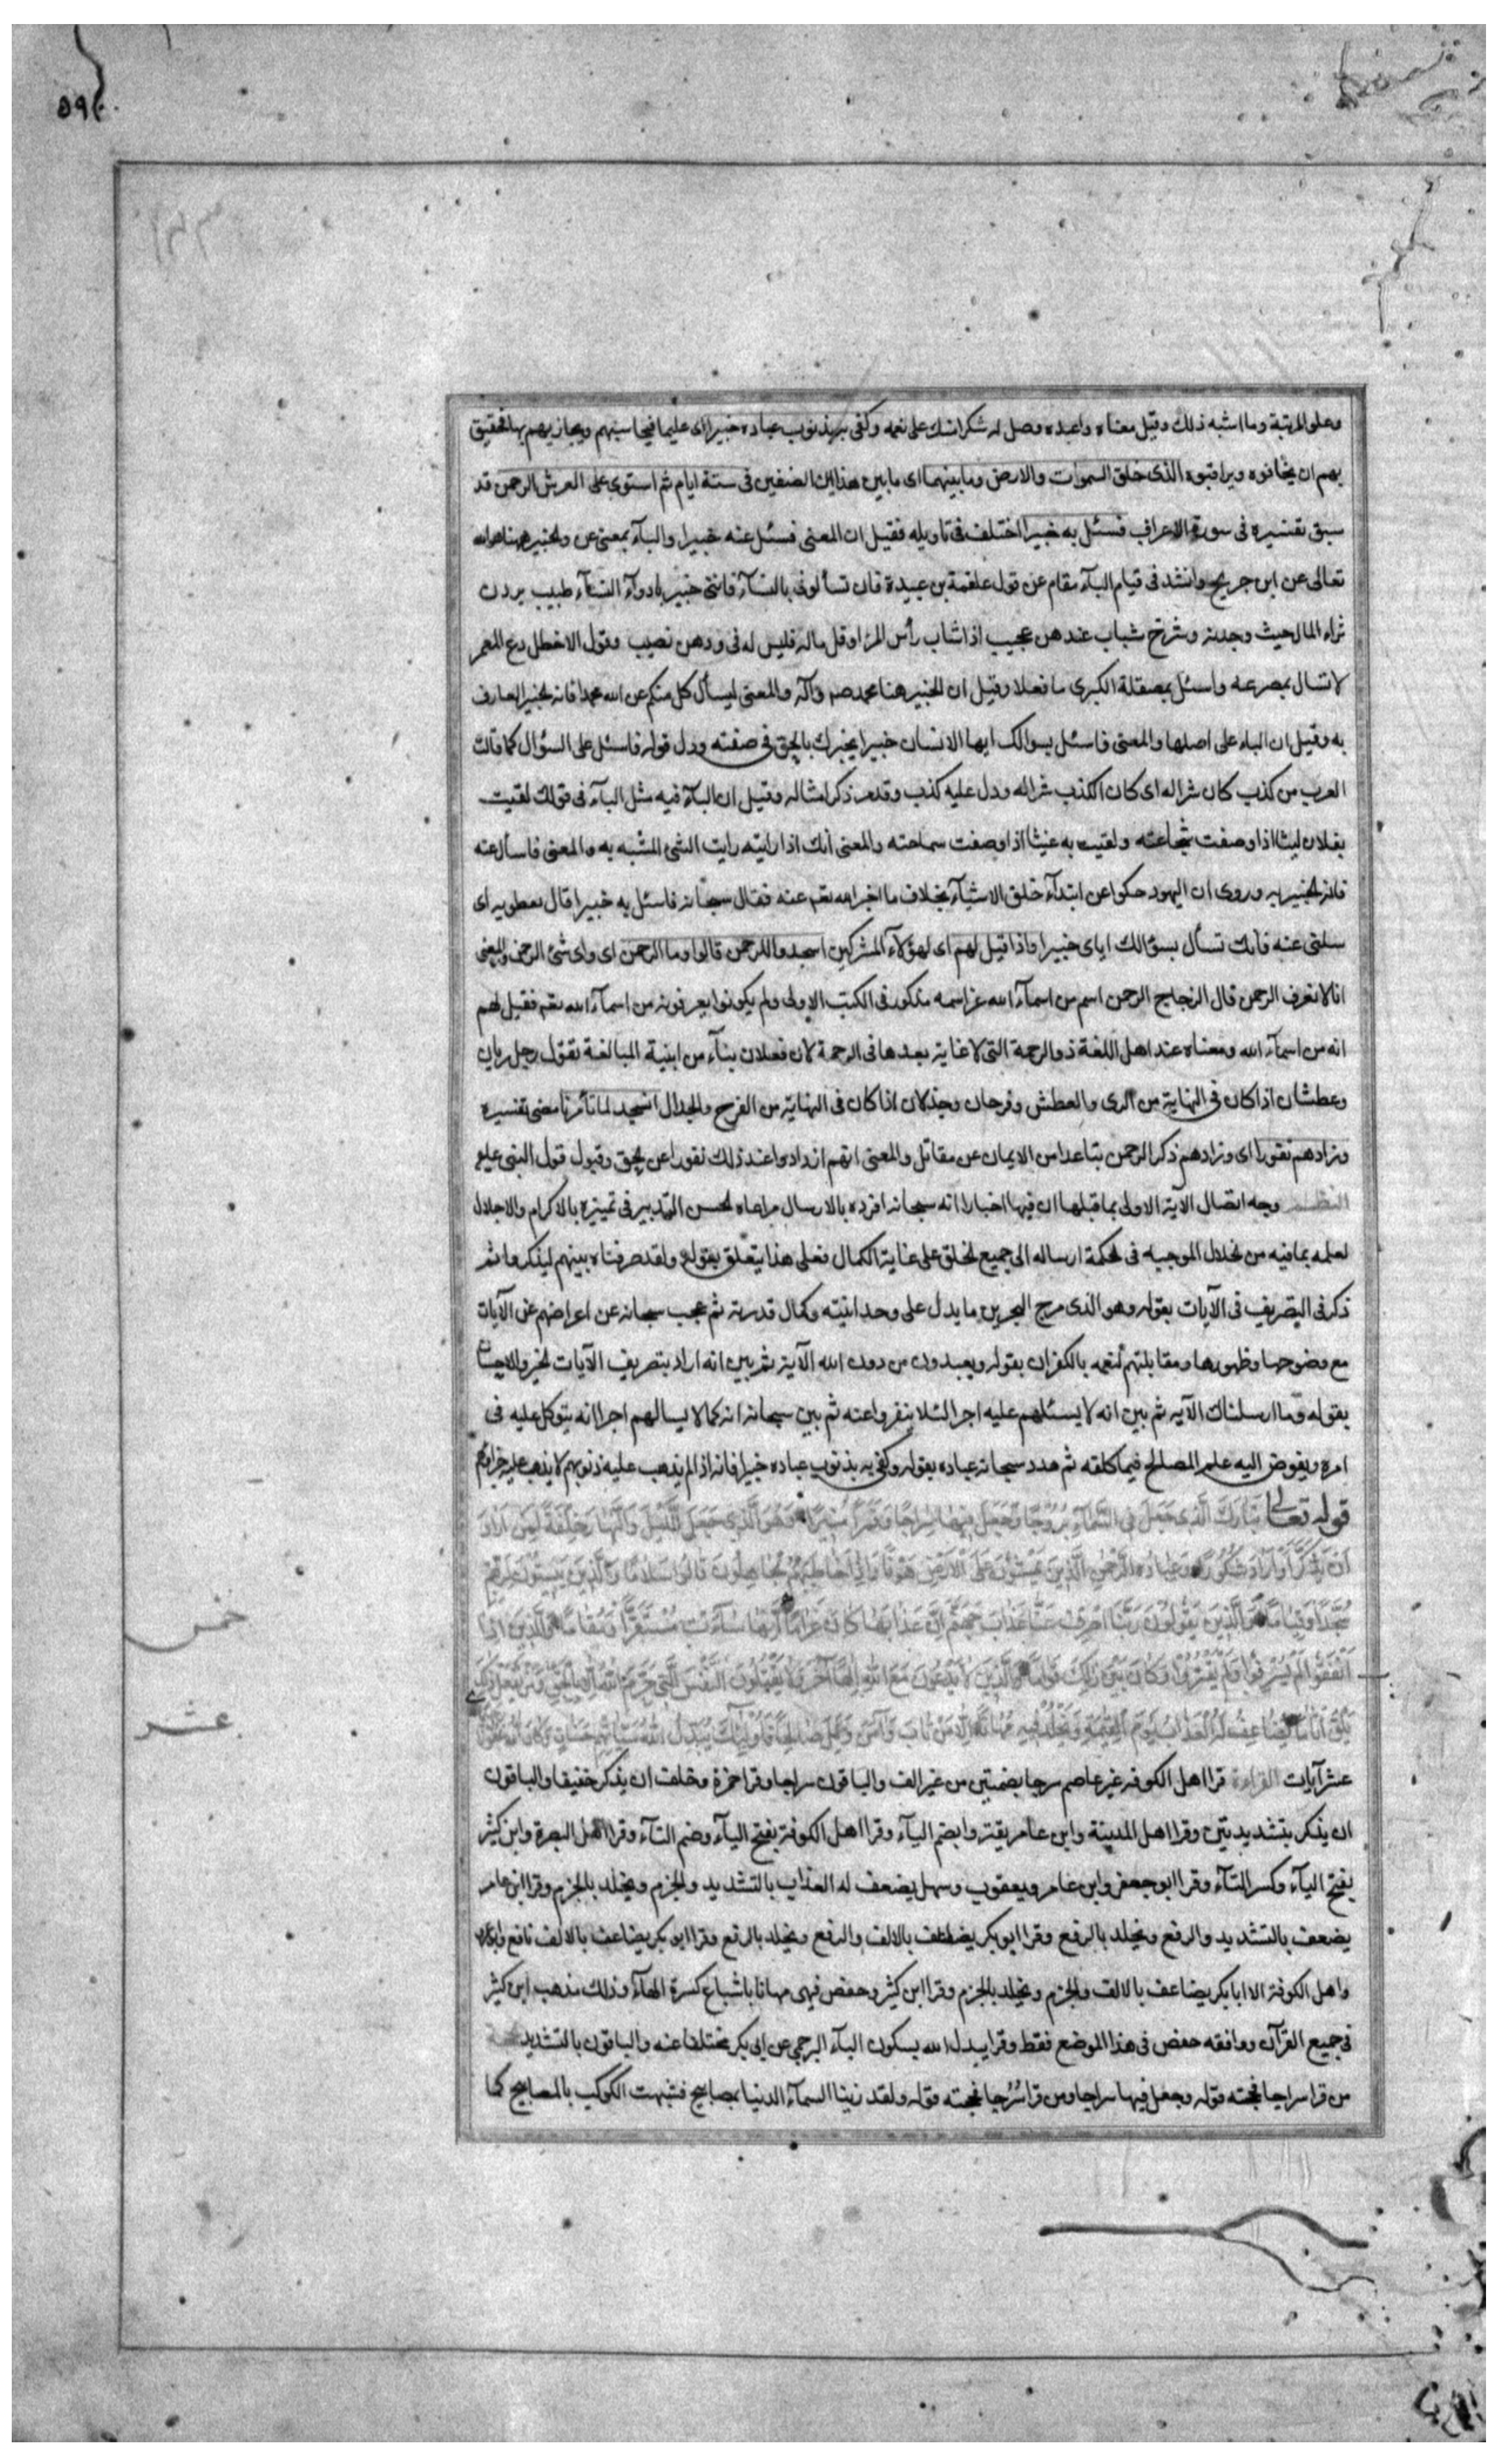 ۵۹۰
وعلو المرتبة وما اشبه ذلك وقيل معناه واعبده وصل له شكرا منك على نعمه وكفى به بذنوب عباده خبيرا اى عليما فيحاسبهم ويجازيهم بها فحقيق
بهم ان يخافوه ويراقبوه الذى خلق السموات والارض وما بينهما اى ما بين هذين الصنفين فى ستة ايام ثم استوى على العرش الرحمن قد
سبق تفسيره فى سورة الاعراف فسئل به خبيرا اختلف فى تاويله فقيل ان المعنى فسئل عنه خبيرا والبآء بمعنى عن والخبير ههنا هو الله
تعالى عن ابن جريج وانشد فى قيام البآء مقام عن قول علقمة بن عبيدة فان تسألونى بالنسآء فاننى خبير بادوآء النسآء طبيب يردن
ثراء المال حيث وجدنه وشرخ شباب عندهن عجيب اذا شاب رأس المرء او قل ماله فليس له فى ودهن نصيب وقول الاخطل دع المعمر
لا تسال بمصرعه واسئل بمصقلة الكبرى ما فعلا وقيل ان الخبير هنا محمد صم وآله والمعنى ليسأل كل منكم عن الله محمدا فانه الخبير العارف
به وقيل ان الباء على اصلها والمعنى فاسئل بسوالك ايها الانسان خبيرا يخبرك بالحق فى صفته ودل قوله فاسئل على السؤال كما قالت
العرب من كذب كان شرا له اى كان الكذب شرا له ودل عليه كذب وقد مر ذكر امثاله وقيل ان البآء فيه مثل البآء فى قولك لقيت
بفلان ليثا اذا وصفت شجاعته ولقيت به غيثا اذا وصفت سماحته والمعنى انك اذا رايته رايت الشئ المشبه به والمعنى فاسأل عنه
فانه الخبير به وروى ان اليهود حكوا عن ابتدآء خلق الاشيآء بخلاف ما اخبر الله تعم عنه فقال سبحانه فاسئل به خبيرا قال نفطويه اى
سلنى عنه فانك تسأل بسؤالك اياى خبيرا واذا قيل لهم اى لهؤلآء المشركين اسجدوا للرحمن قالوا وما الرحمن اى واى شئ الرحمن والمعنى
انا لا نعرف الرحمن قال الزجاج الرحمن اسم من اسمآء الله عز اسمه مذكور فى الكتب الاولى ولم يكونوا يعرفونه من اسمآء الله تعم فقيل لهم
انه من اسمآء الله ومعناه عند اهل اللغة ذو الرحمة التى لا غاية بعدها فى الرحمة لان فعلان بنآء من ابنية المبالغة تقول رجل ريان
وعطشان اذا كان فى النهاية من الرى والعطش وفرحان وجذلان اذا كان فى النهاية من الفرح والجذل انسجد لما تأمرنا مضى تفسيره
وزادهم نفورا اى وزادهم ذكر الرحمن تباعدا من الايمان عن مقاتل والمعنى انهم ازدادوا عند ذلك نفورا عن الحق وقبول قول النبى عليه
النظم وجه اتصال الآية الاولى بما قبلها ان فيها اخبارا انه سبحانه افرده بالارسال مراعاه لحسن التدبير فى تميزه بالاكرام والاجلال
لعلمه بما فيه من الخلال الموجبه فى الحكمة ارساله الى جميع الخلق على غاية الكمال فعلى هذا يتعلق بقوله ولقد صرفناه بينهم ليذكروا ثم
ذكر فى التصريف فى الآيات بقوله وهو الذى مرج البحرين ما يدل على وحدانيته وكمال قدرته ثم عجب سبحانه عن اعراضهم عن الآيات
مع وضوحها وظهورها ومقابلتهم لنعمه بالكفران بقوله ويعبدون من دون الله الآية ثم بين انه اراد بتصريف الآيات الخير والاحسان
بقوله وما ارسلناك الآيه ثم بين انه لا يسئلهم عليه اجرا لئلا ينفروا عنه ثم بين سبحانه انه كما لا يسالهم اجرا انه يتوكل عليه فى
امره ويفوض اليه علم المصالح فيما كلفه ثم هدد سبحانه عباده بقوله وكفى به بذنوب عباده خبيرا فانه اذا لم يذهب عليه ذنوبهم لا يذهب عليه جزاؤهم
قوله تعالى تَبَارَكَ الَّذِى جَعَلَ فِى السَّمَآءِ بُرُوجًا وَجَعَلَ فِيهَا سِرَاجًا وَقَمَرًا مُنِيرًا وَهُوَ الَّذِى جَعَلَ اللَّيْلَ وَالنَّهَارَ خِلْفَةً لِمَنْ اَرَادَ
اَنْ يَذَّكَّرَ اَوْ اَرَادَ شُكُورًا وَعِبَادُ الرَّحْمٰنِ الَّذِينَ يَمْشُونَ عَلَى الْاَرْضِ هَوْنًا وَاِذَا خَاطَبَهُمُ الْجَاهِلُونَ قَالُوا سَلَامًا وَالَّذِينَ يَبِيتُونَ لِرَبِّهِمْ
سُجَّدًا وَقِيَامًا وَالَّذِينَ يَقُولُونَ رَبَّنَا اصْرِفْ عَنَّا عَذَابَ جَهَنَّمَ اِنَّ عَذَابَهَا كَانَ غَرَامًا اِنَّهَا سَآءَتْ مُسْتَقَرًّا وَمُقَامًا وَالَّذِينَ اِذَا
خمس
اَنْفَقُوا لَمْ يُسْرِفُوا وَلَمْ يَقْتُرُوا وَكَانَ بَيْنَ ذٰلِكَ قَوَامًا وَالَّذِينَ لَا يَدْعُونَ مَعَ اللهِ اِلٰهًا آخَرَ وَلَا يَقْتُلُونَ النَّفْسَ الَّتِى حَرَّمَ اللهُ اِلَّا بِالْحَقِّ وَمَنْ يَفْعَلْ ذٰلِكَ
يَلْقَ اَثَامًا يُضَاعَفْ لَهُ الْعَذَابُ يَوْمَ الْقِيٰمَةِ وَيَخْلُدْ فِيهِ مُهَانًا اِلَّا مَنْ تَابَ وَآمَنَ وَعَمِلَ صَالِحًا فَاُولٰئِكَ يُبَدِّلُ اللهُ سَيِّاٰتِهِمْ حَسَنَاتٍ وَكَانَ اللهُ غَفُورًا
عشر
عشر آيات القراءة قرا اهل الكوفه غير عاصم سرجا بضمتين من غير الف والباقون سراجا وقرا حمزة وخلف ان يذكر خفيفا والباقون
ان يذكر بتشديدتين وقرا اهل المدينة وابن عامر يقتروا بضم اليآء وقرا اهل الكوفة بفتح اليآء وضم التآء وقرا اهل البصرة وابن كثير
بفتح اليآء وكسر التآء وقرا ابو جعفر وابن عامر ويعقوب وسهل يضعف له العذاب بالتشديد والجزم ويخلد بالجزم وقرا ابن عامر
يضعف بالتشديد والرفع ويخلد بالرفع وقرا ابو بكر يضاعف بالالف والرفع ويخلد بالرفع وقرا ابو بكر يضاعف بالالف نافع وابو
واهل الكوفة الا ابا بكر يضاعف بالالف والجزم ويخلد بالجزم وقرا ابن كثير وحفص فيهى مهانا باشباع كسرة الهآء وذلك مذهب ابن كثير
فى جميع القرآن ووافقه حفص فى هذا الموضع فقط وقرا يبدل الله بسكون البآء البرجمى عن ابى بكر مختلفا عنه والباقون بالتشديد
من قرا سراجا فحجته قوله وجعل فيها سراجا ومن قرا سُرُجا فحجته قوله ولقد زينا السمآء الدنيا بمصابيح فشبهت الكوكب بالمصابيح كما